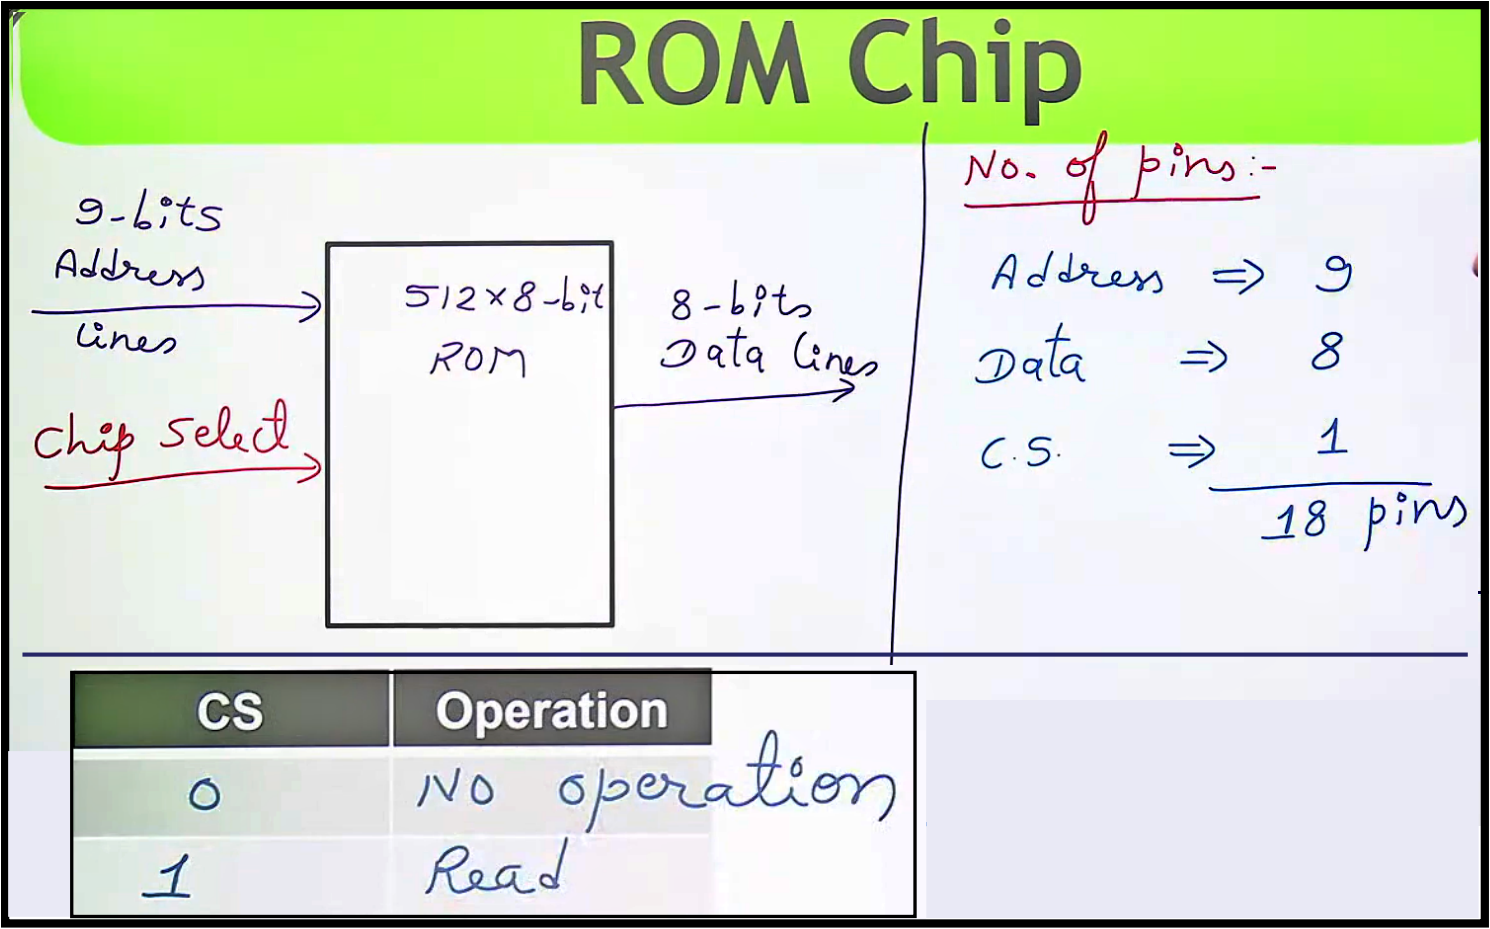 ROM Chip
9-bits
Address
lines
Chip Select
512×8-bit
ROM
8-bits
Data lines
No. of pins:-
Address ⇒ 9
Data ⇒ 8
C.S. ⇒ 1
18 pins
CS Operation
0 No operation
1 Read